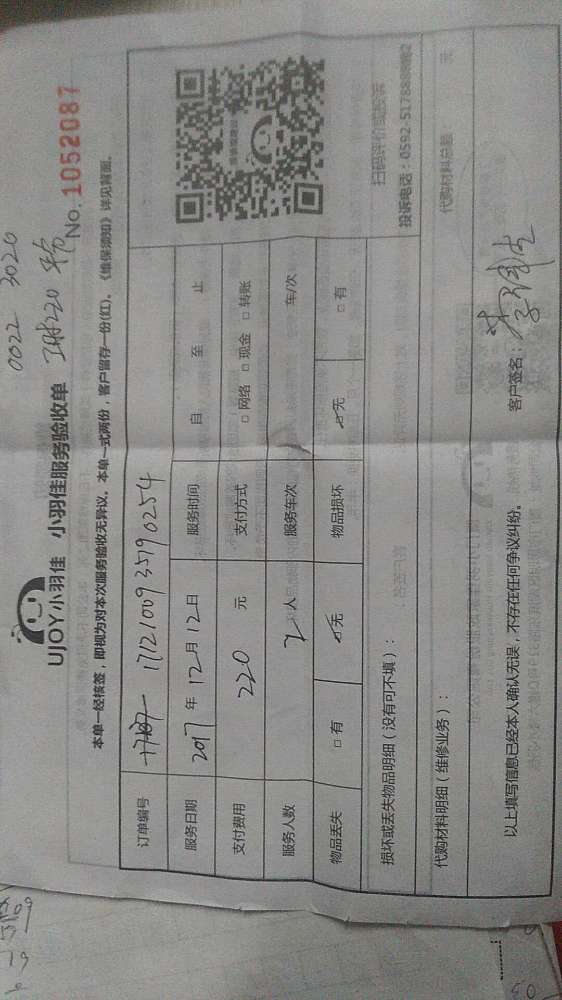 0022 3020
UJOY小羽佳 小羽佳服务验收单
220
No. 1052087
本单一经核签，即视为对本次服务验收无异议。本单一式两份，客户留存一份(红)。《维保须知》详见背面。
订单编号 1712100935790254
服务日期 2017 年 12 月 12 日 服务时间 自 至 止
支付费用 220 元 支付方式 □ 网络 □ 现金 □ 转账
服务人数 2 人 服务车次 车/次
物品丢失 □ 有 ☑ 无 物品损坏 ☑ 无 □ 有
扫码评价或投诉
损坏或丢失物品明细（没有可不填）：
代购材料明细（维修业务）： 代购材料总额： 元
以上填写信息已经本人确认无误，不存在任何争议纠纷。 客户签名：